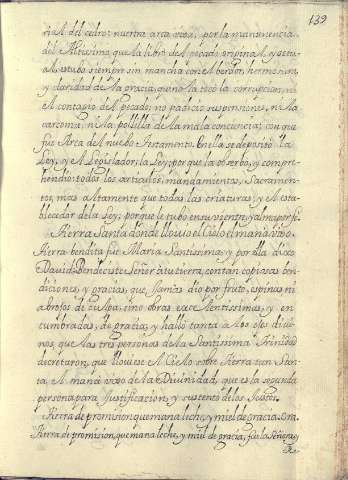 139
del cedro: nuestra arca viva; por la mano
del Altissimo, que la libró del pecado original, y
estubo siempre sin mancha con el verdor, hermosura,
y claridad de la gracia, que no la toco la corrupcion, ni
el contagio del pecado; no padecio suspensiones, ni la
carcoma, ni la polilla de la mala conciencia; con que
fue Arca del nuebo Testamento. En ella se deposito la
Ley, y el Legislador; la Ley, porque la observo, y compre-
hendio todos los articulos, mandamientos, Sacramen-
tos, mas altamente que todas las criaturas; y el esta-
blecedor de la Ley; porque le tubo en su vientre, y alma
Tierra Santa donde llovio el Cielo el maná vivo.
Tierra bendita fue Maria Santissima, y por ella dixo
David: Bendeciste Señor á tu tierra, con tan copiosas ben-
diciones, y gracias, que jamas dio por fruto, espinas, ni
abrojos de culpa, sino obras excelentissimas, y en
cumbradas, de gracias, y hallo tanta a los ojos divi-
nos, que las tres personas de la Santissima Trinidad
decretaron, que lloviese el Cielo sobre tierra tan San-
ta, el maná vivo de la Divinidad, que es la segunda
persona para justificacion, y sustento de los Justos.
Tierra de promision, que mana leche, y miel de gracia. Era
Tierra de promision, que mana leche, y miel de gracia, la Señora,